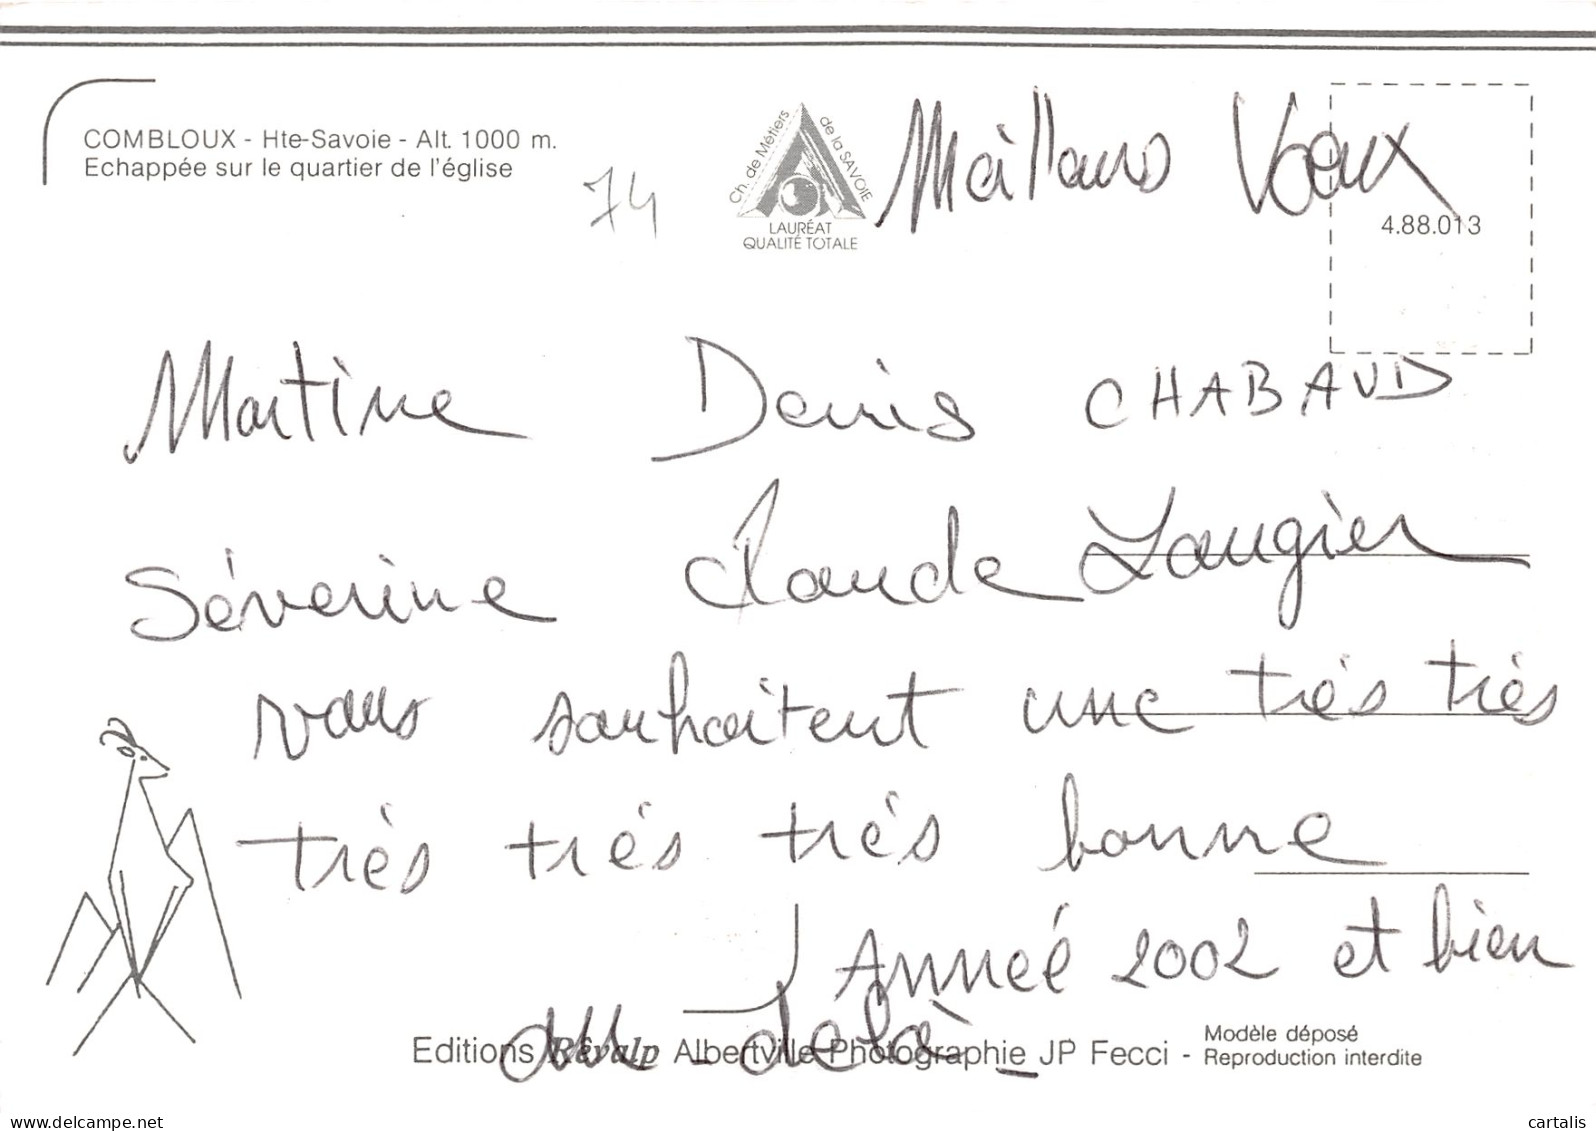 COMBLOUX - Hte-Savoie - Alt. 1000 m.
Echappée sur le quartier de l'église
74
Ch. de Métiers de la SAVOIE
LAURÉAT
QUALITÉ TOTALE
Meillaus Voeux
4.88.013
Martine Denis CHABAUD
Séverine Claude Laugier
vous souhaitent une très très
très très très bonne
Anneé 2002 et bien
au-delà
Editions Révalp Albertville Photographie JP Fecci -
Modèle déposé
Reproduction interdite
www.delcampe.net
cartalis